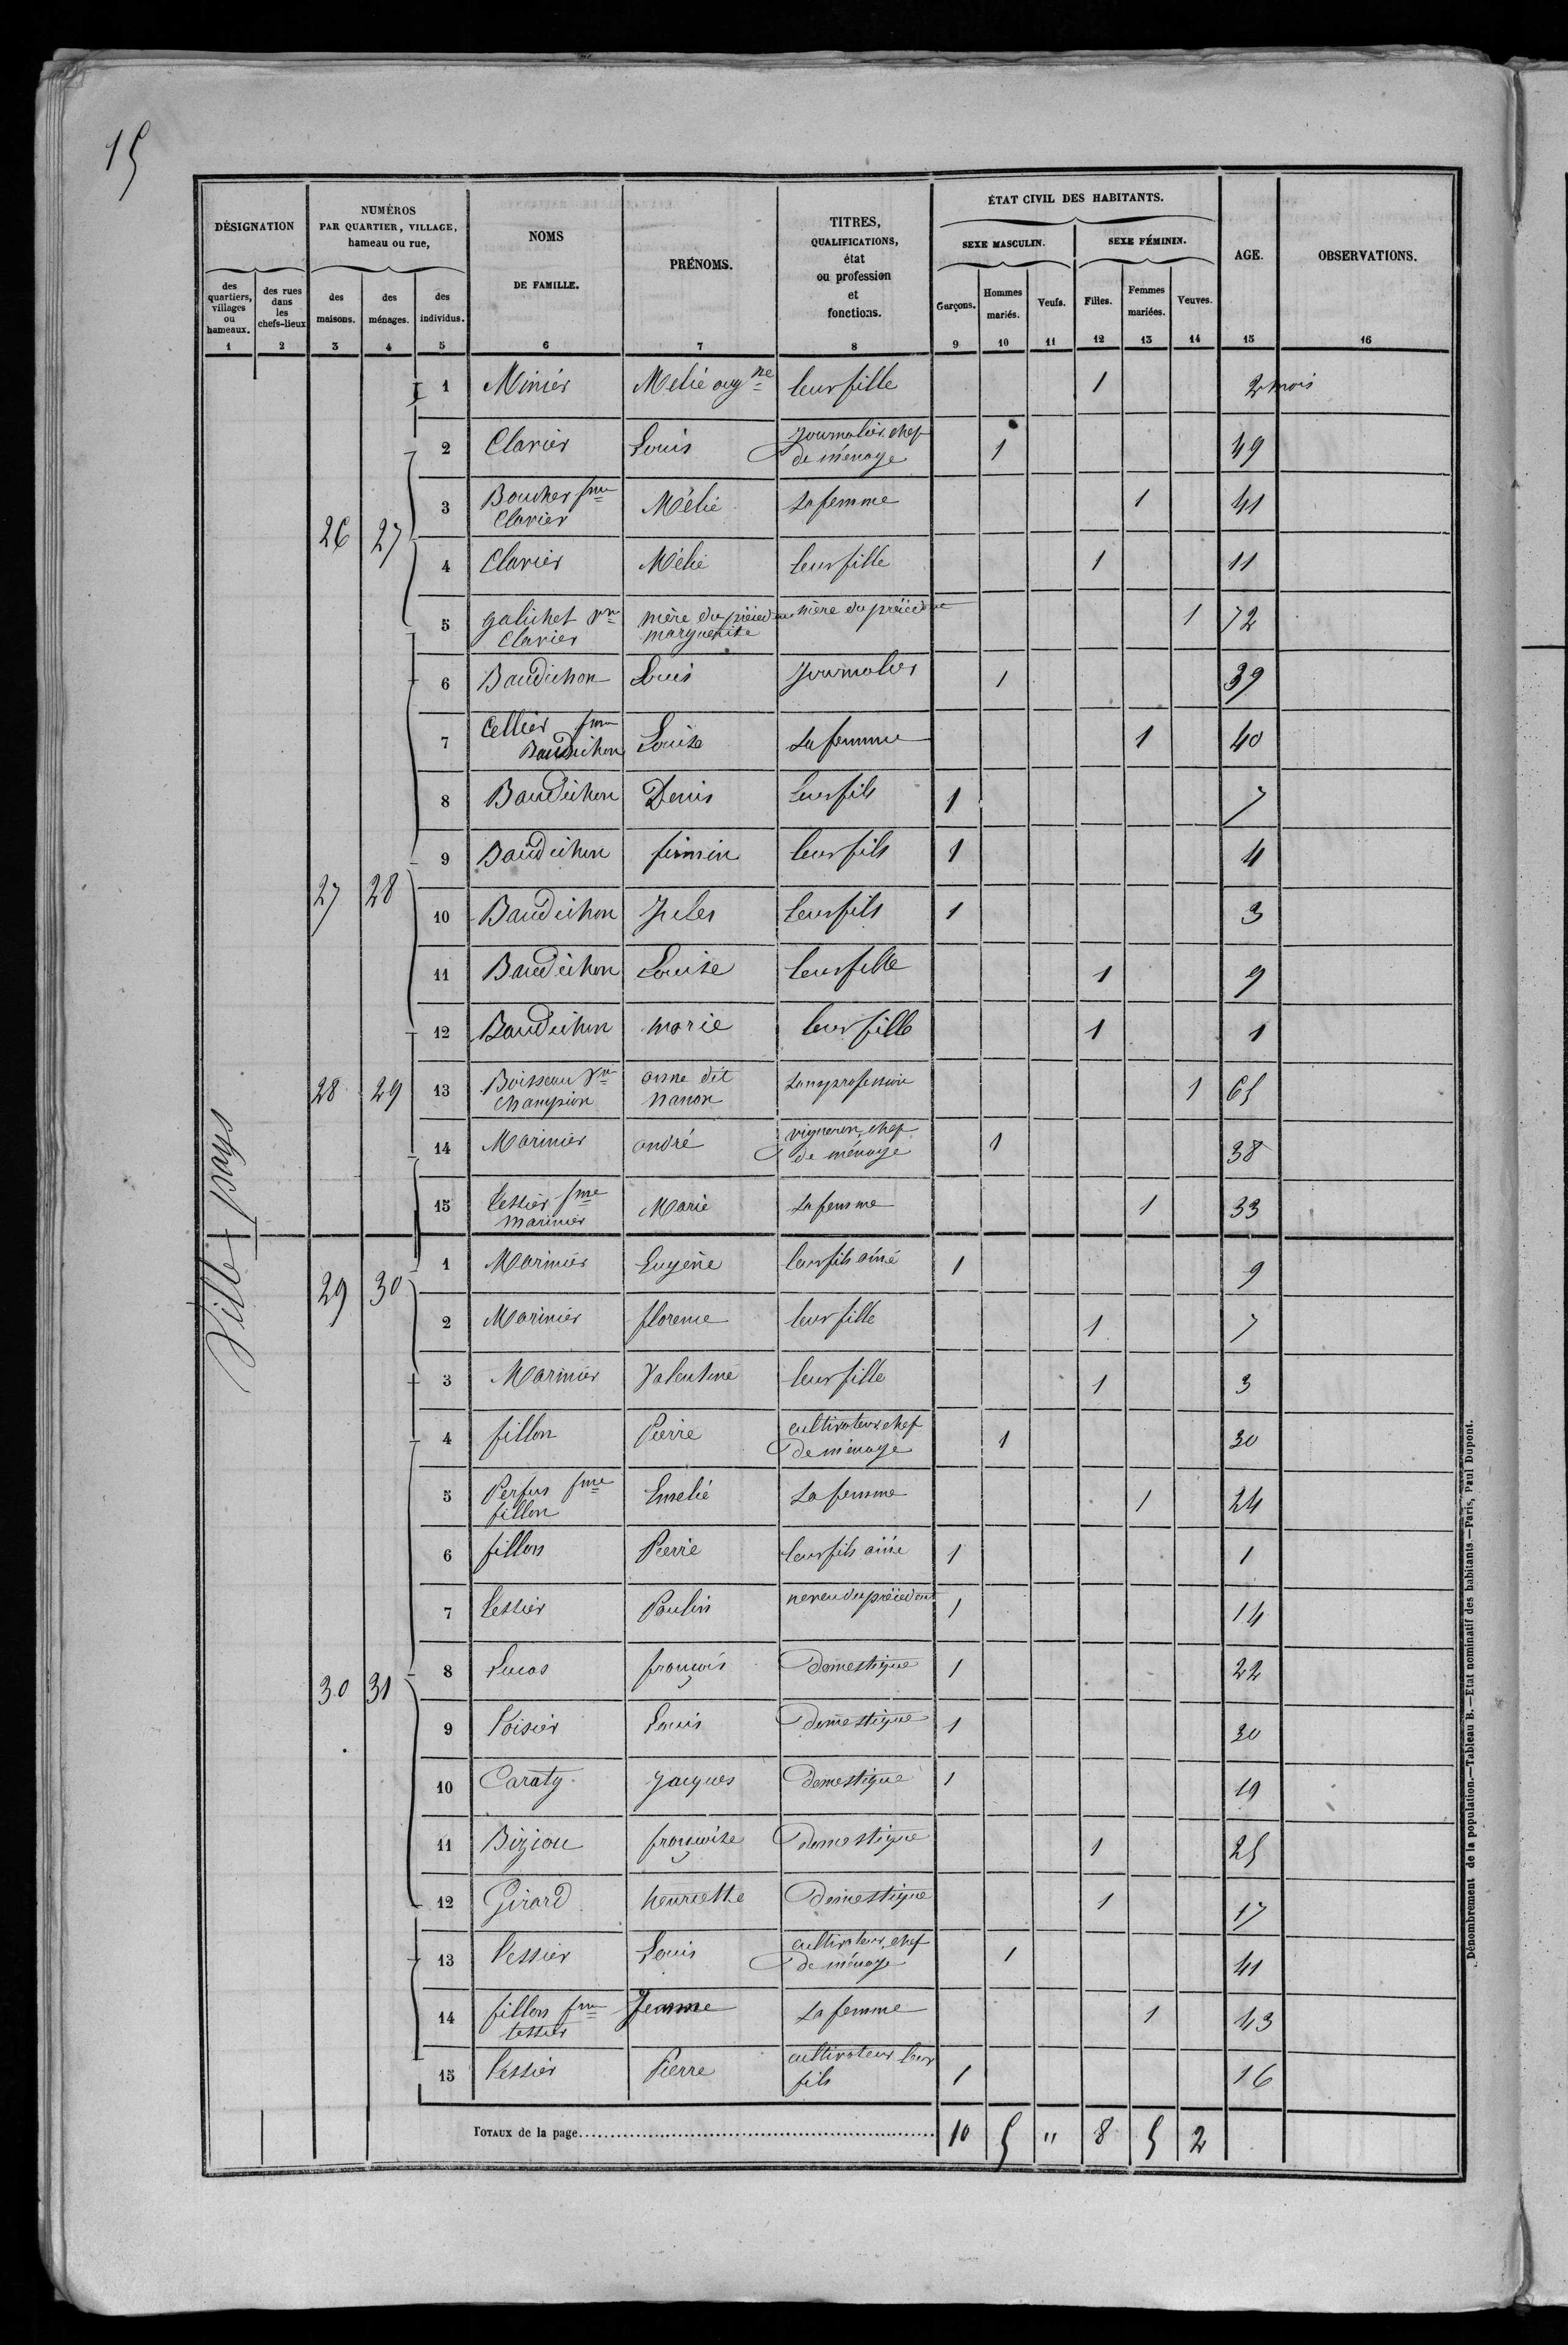 15
DÉSIGNATION
NUMÉROS
PAR QUARTIER, VILLAGE,
hameau ou rue,
NOMS
DE FAMILLE.
PRÉNOMS.
TITRES,
QUALIFICATIONS,
état
ou profession
et
fonctions.
ÉTAT CIVIL DES HABITANTS.
SEXE MASCULIN.
SEXE FÉMININ.
AGE.
OBSERVATIONS.
des
quartiers,
villages
ou
hameaux.
des rues
dans
les
chefs-lieux
des
maisons.
des
ménages.
des
individus.
Garçons.
Hommes
mariés.
Veufs.
Filles.
Femmes
mariées.
Veuves.
1 2 3 4 5 6 7 8 9 10 11 12 13 14 15 16
Ville pays
1 Minier Melié aug ne leur fille 1 2 mois
2 Clavier Louis Journalier chef
de ménage 1 49
26 27
3 Boucher fme
Clavier Mélie sa femme 1 41
4 Clavier Mélie leur fille 1 11
5 galichet Vve
Clavier mère du précédent
marguerite mère du précédent 1 72
6 Baudichon Louis Journalier 1 39
7 Cellier fme
Baudichon Louise sa femme 1 40
8 Baudichon Denis leur fils 1 7
9 Baudichon firmin leur fils 1 4
27 28
10 Baudichon Jules leur fils 1 3
11 Baudichon Louise leur fille 1 9
12 Baudichon marie leur fille 1 1
28 29 13 Boisseau Vve
Champion anne dit
nanon sans profession 1 65
14 Marinier andré vigneron, chef
de ménage 1 38
15 tessier fme
marinier Marie sa femme 1 33
29 30
1 Marinier Eugène leur fils ainé 1 9
2 Marinier florence leur fille 1 7
3 Marinier Valentine leur fille 1 3
4 fillon Pierre cultivateur chef
de ménage 1 30
5 Perfus fme
fillon Emelie sa femme 1 24
6 fillon Pierre leur fils ainé 1 1
7 tessier Paulin neveu du précédent 1 14
30 31
8 Lucas françois Domestique 1 22
9 Loisier Louis Domestique 1 20
10 Caraty Jacques Domestique 1 19
11 Biziou françoise Domestique 1 25
12 Girard henriette Domestique 1 17
13 tessier Louis cultivateur, chef
de ménage 1 41
14 fillon fme
tessier Jeanne sa femme 1 43
15 tessier Pierre cultivateur leur
fils 1 16
TOTAUX de la page 10 5 " 8 5 2
Dénombrement de la population.—Tableau B.—Etat nominatif des habitants.—Paris, Paul Dupont.